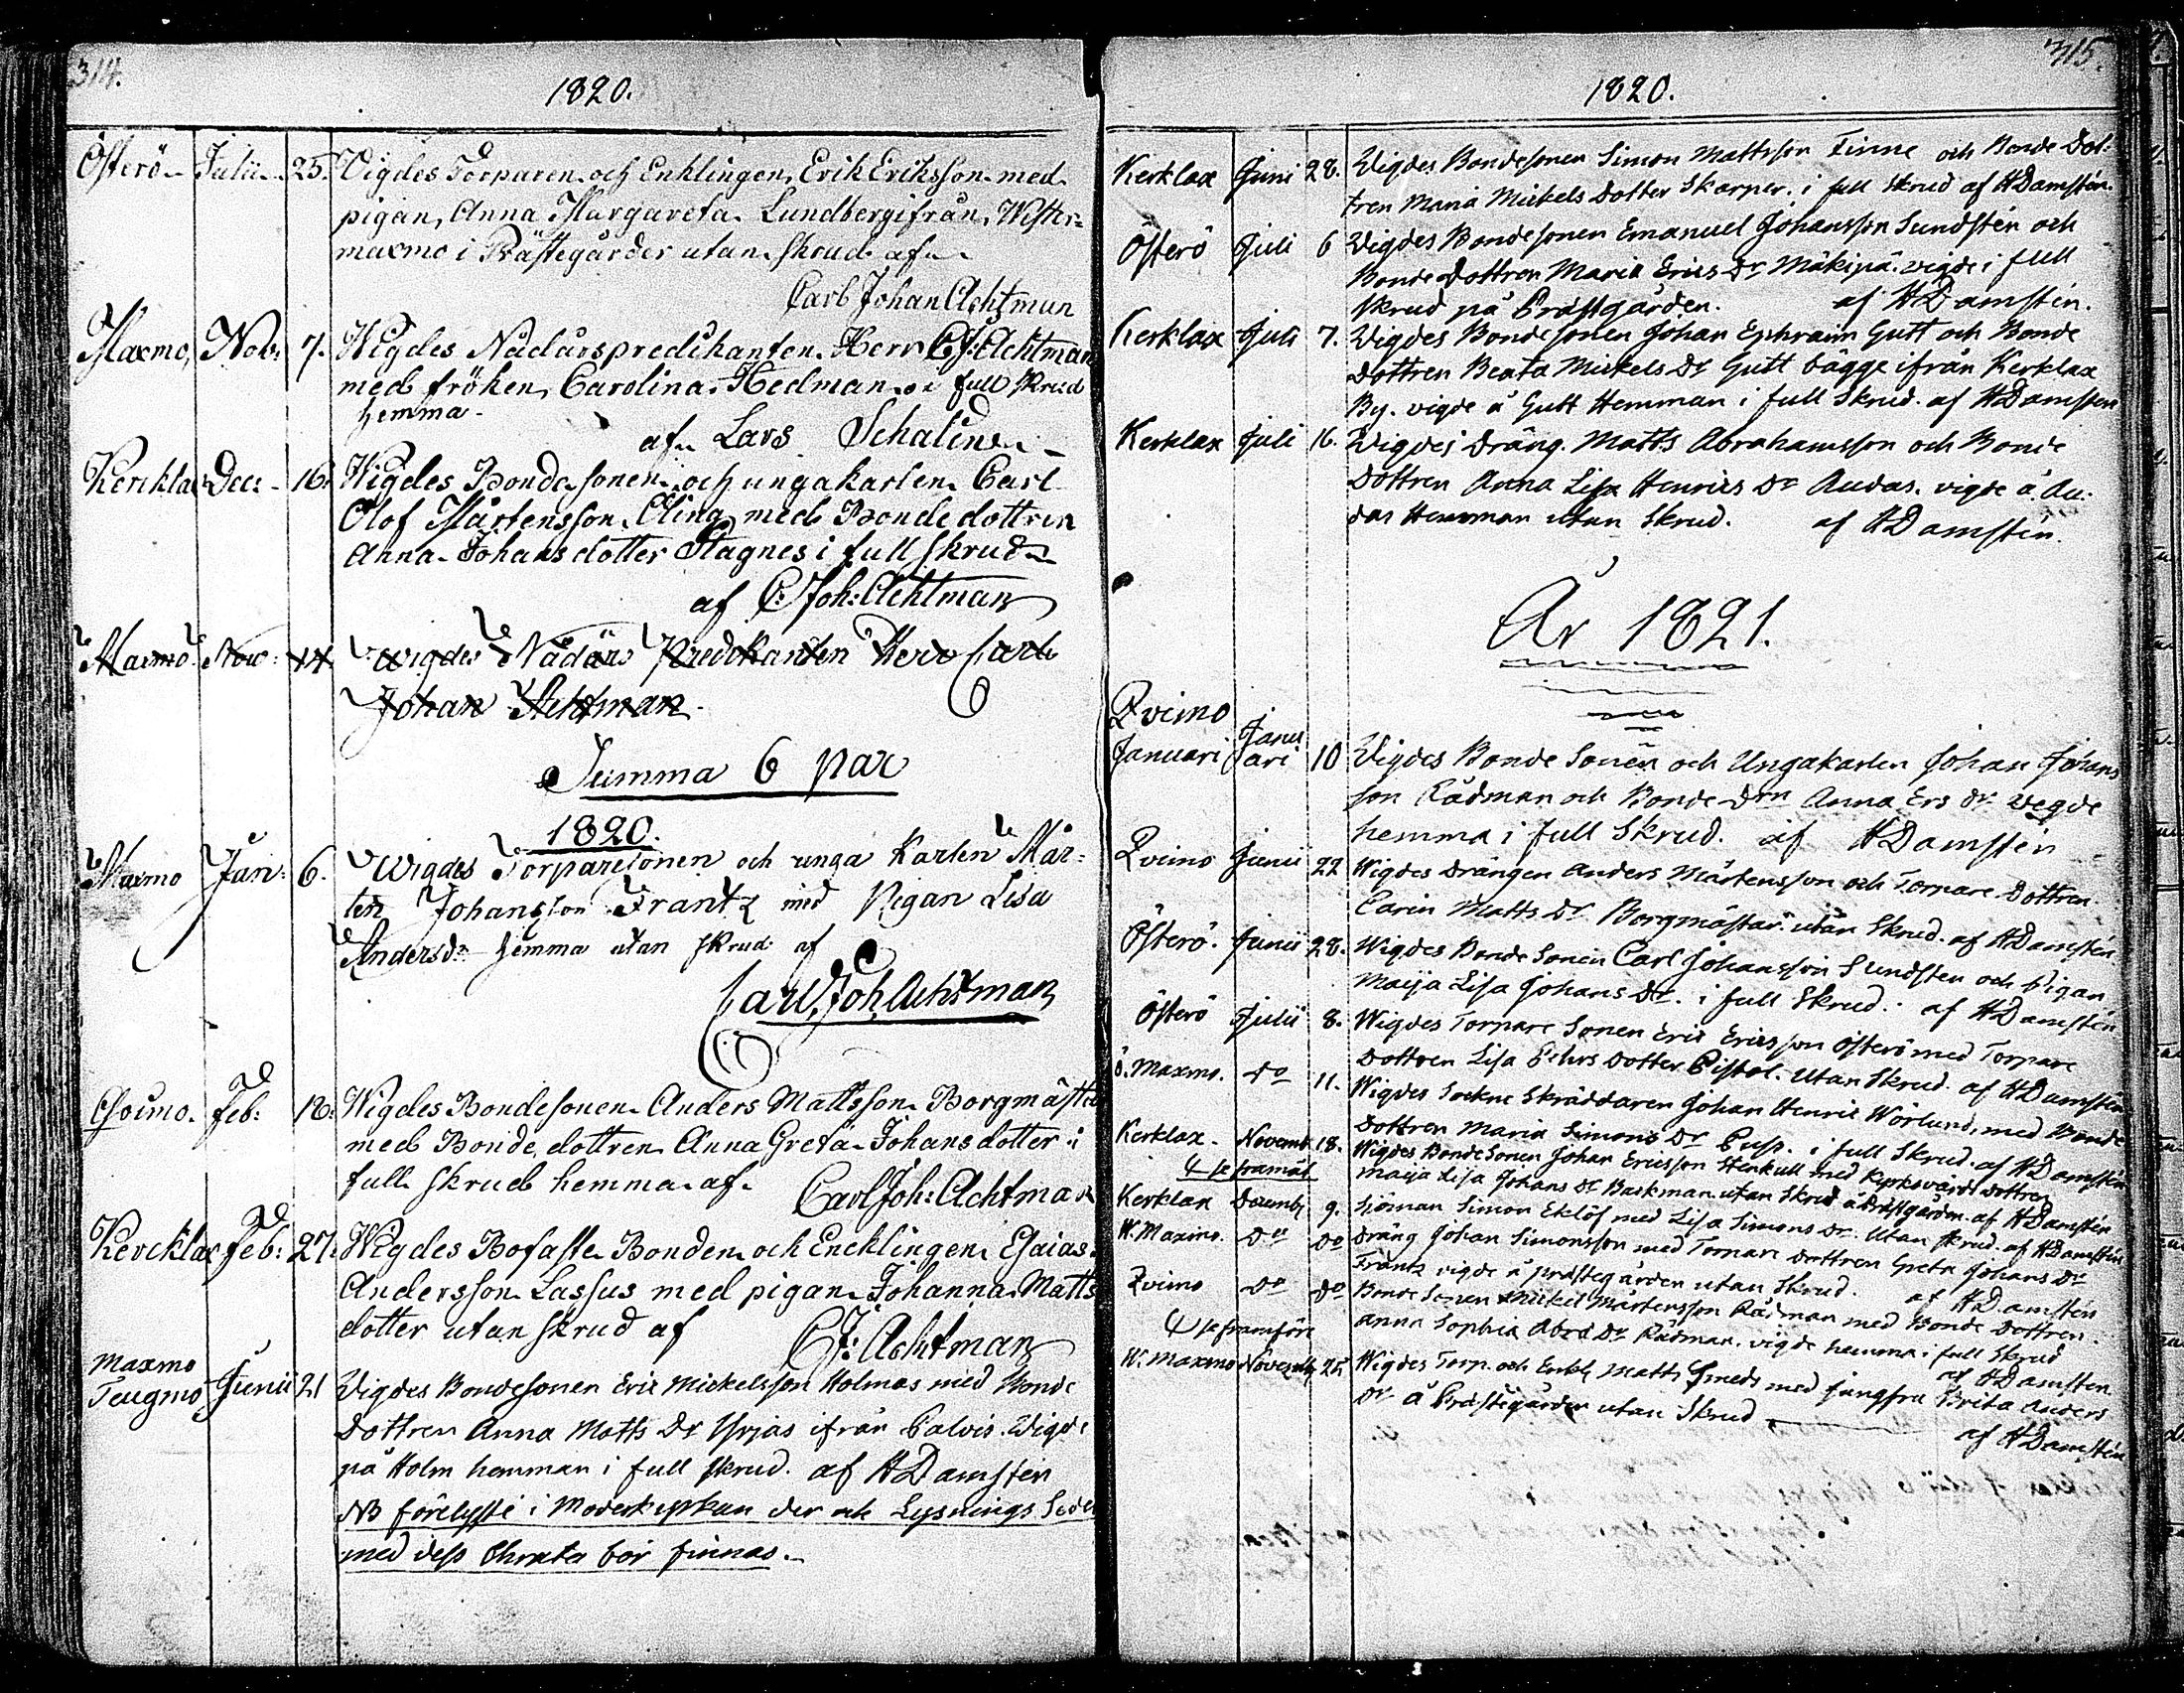 314.
1820.
Österö Julii 25. Vigdes Torparen och Enklingen Erik Eriksson med
pigan, Anna Margareta Lundberg ifrån Wester-
maxmo i Prästegården utan skrud af
Carl Johan Achtman
Maxmo, Nob: 7. Wigdes Nådårspredikanten Herr C.J. Achtman
med fröken Carolina Hedman i full skrud
hemma
af Lars Schalin
Kercklax Dec: 16. Wigdes Bondesonen och ungakarlen Carl
Olof Mårtensson Cling med Bonde dottren
Anna Johans dotter Stagnes i full skrud
af C: Joh: Achtman
Maxmo Nov: 14 Wigdes Nådårs Predikanten Herr Carl
Johan Achtman
Summa 6 par
1820.
Maxmo Jan: 6. Wigdes Torparesonen och unga Karlen Mår-
ten Johansson Frantz med Pigan Lisa
Andersdr hemma utan skrud af
Carl Joh Achtman
Qvimo Feb: 18. Wigdes Bondesonen Anders Mattsson Borgmästar
med Bonde dottren Anna Greta Johans dotter i
full skrud hemma af Carl Joh: Achtman
Kercklax Feb: 27. Wigdes Bofaste Bonden och Encklingen Esaias
Andersson Lassus med pigan Johanna Matts
dotter utan skrud af C.J: Achtman
Maxmo
Teugmo Junii 21 Vigdes Bondesonen Eric Mickelsson Holmas med Bonde
Dottren Anna Matts Dr Yrjas ifrån Calvis. Vigde
på Holm hemman i full skrud. af HDamstén
NB förelysste i Moderkyrkan der och Lysnings Sedel
med dess Chrata bör finnas.
315.
1820.
Kerklax Juni 28. Vigdes Bondesonen Simon Mattsson Finne och Bonde Dot-
tren Maria Mickels Dotter Skarper. i full Skrud af HDamstén.
Österö Juli 6 Vigdes Bondesonen Emanuel Johansson Sundstén och
Bonde Dottren Maria Erics Dr Mäkipä. vigde i full
skrud på Prästgården. af HDamstén.
Kerklax Juli 7. Vigdes Bondesonen Johan Ephraim Gutt och Bonde
Dottren Beata Mickels Dr Gutt bägge ifrån Kerklax
By. vigde å Gutt Hemman i full Skrud. af HDamsten
Kerklax Juli 16. Vigdes Dräng. Matts Abrahamsson och Bonde
Dottren Anna Lisa Henrics Dr Audas. vigde å Au-
das Hemman utan Skrud. af HDamstén.
År 1821.
Qvimo
Januari Janu
ari 10 Vigdes Bonde Sonen och Ungakarlen Johan Johans
son Rådman och Bonde Drn Anna Ers dr. vigde
hemma i full Skrud. af HDamstén
Qvimo Junii 22 Wigdes Drängen Anders Mårtensson och Torpare Dottren
Carin Matts Dr Borgmästar. utan Skrud. af HDamstén.
Österö. Junii 28. Wigdes Bonde Sonen Carl Johansson Sundsten och Pigan
Maija Lisa Johans Dr. i full Skrud. af HDamstén
Österö Julii 8. Wigdes Torpare Sonen Eric Ericsson Österö med Torpare
Dottren Lisa Pehrs Dotter Pistol. Utan Skrud. af HDamstén
Ö. Maxmo. do 11. Wigdes Sockne Skräddaren Johan Henric Wörlund, med Bonde
Dottren Maria Simons Dr Puss. i full Skrud. af HDamstén
Kerklax. Novemb. 18. Wigdes Bonde Sonen Johan Ericsson Stenkull med Kyrkovärds dottren
4 se framåt
Maija Lisa Johans Dr Backman utan Skrud å Prästgården. af HDamstén
Kerklax Decemb 9. Sjöman Simon Eklöf med Lisa Simons Dr. Utan skrud. af HDamstén
W. Maxmo. Do Do Dräng Johan Simonsson med Torpare dottren Greta Johans Dr
Frantz vigde å prästegården utan Skrud. af HDamstén
Qvimo Do Do Bonde Sonen Mickel Mårtensson Rådman med Bonde Dottren
Anna Sophia Abra Dr Rådman. vigde hemma i full Skrud
4 se framföre
af HDamsten
W. Maxmo Novemb 25. Wigdes Torp. och Enkl Matts Smeds med jungfru Brita Anders
Dr å Prästegården utan Skrud
af HDamstén